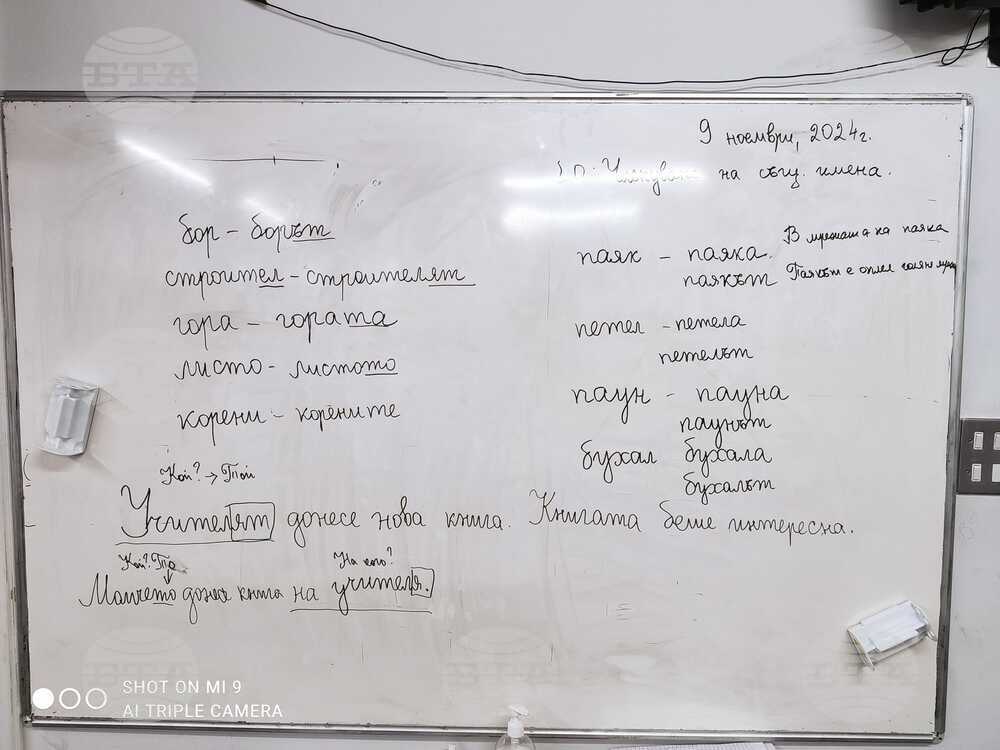 БТА
9 ноември, 2024г.
на общ. имена.
бор - борът
строител - строителят
гора - гората
листо - листото
корени - корените
паяк - паяка.
паякът
В мрежата на паяка
Паякът е оплел голяма
петел - петела
петелът
паун - пауна
паунът
бухал бухала
бухалът
Кой? → Той
Учителят донесе нова книга. Книгата беше интересна.
Кой? То
На кого?
Момчето донесе книга на учителя.
БТА
SHOT ON MI 9
AI TRIPLE CAMERA